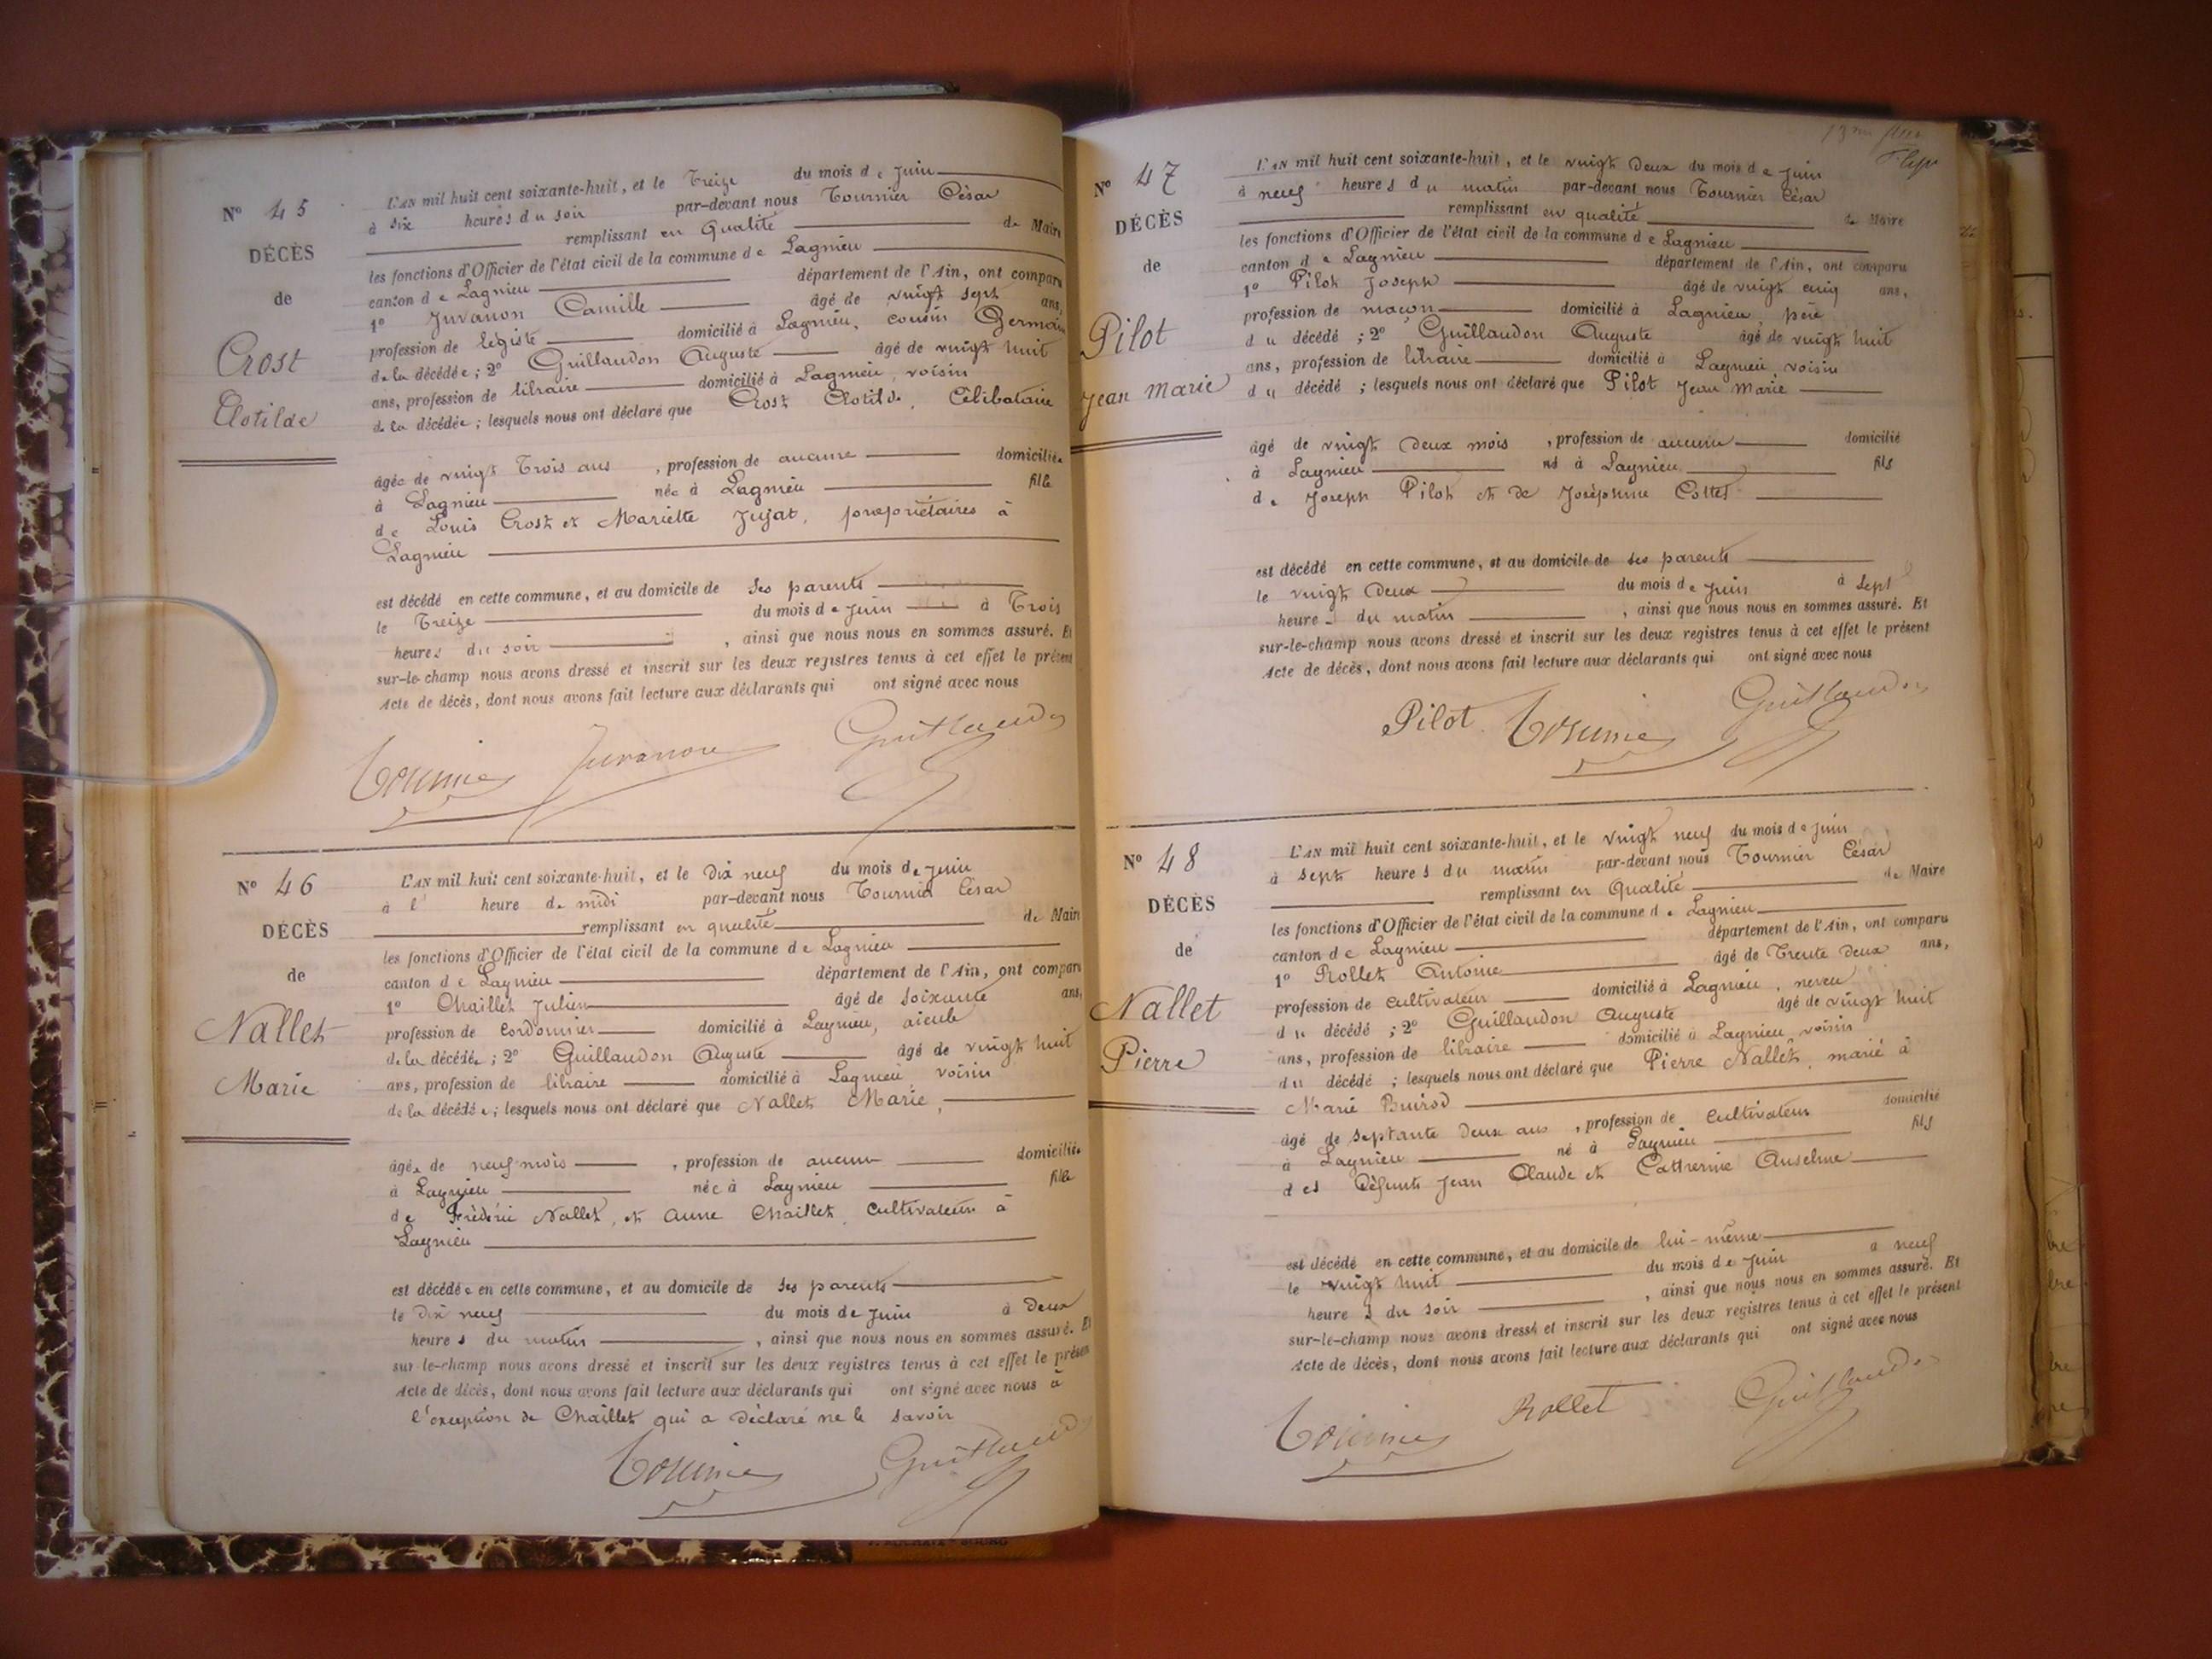 N° 45
DÉCÈS
de
Crost
Clotilde
L'AN mil huit cent soixante-huit, et le Treize du mois de Juin
à six heures du soir par-devant nous Tournier César
remplissant en Qualité de Maire
les fonctions d'Officier de l'état civil de la commune de Lagnieu
canton de Lagnieu département de l'Ain, ont comparu
1° Juvanon Camille âgé de vingt sept ans,
profession de légiste domicilié à Lagnieu, cousin Germain
de la décédée ; 2° Guillaudon Auguste âgé de vingt huit
ans, profession de libraire domicilié à Lagnieu, voisin
de la décédée ; lesquels nous ont déclaré que Crost Clotilde, Célibataire
âgée de vingt Trois ans , profession de aucune domiciliée
à Lagnieu née à Lagnieu fille
de Louis Crost et Mariette Jujat, propriétaires à
Lagnieu
est décédé en cette commune, et au domicile de ses parents
le Treize du mois de Juin à Trois
heures du soir , ainsi que nous nous en sommes assuré. Et
sur-le-champ nous avons dressé et inscrit sur les deux registres tenus à cet effet le présent
Acte de décès, dont nous avons fait lecture aux déclarants qui ont signé avec nous
Tournier Juvanon Guillaudon
N° 46
DÉCÈS
de
Nallet
Marie
L'AN mil huit cent soixante-huit, et le dix neuf du mois de Juin
à l' heure de midi par-devant nous Tournier César
remplissant en qualité de Maire
les fonctions d'Officier de l'état civil de la commune de Lagnieu
canton de Lagnieu département de l'Ain, ont comparu
1° Chaillet Julien âgé de soixante ans,
profession de cordonnier domicilié à Lagnieu, aieule
de la décédée ; 2° Guillaudon Auguste âgé de vingt huit
ans, profession de libraire domicilié à Lagnieu, voisin
de la décédée ; lesquels nous ont déclaré que Nallet Marie,
âgée de neuf mois , profession de aucune domiciliée
à Lagnieu née à Lagnieu fille
de Frédéric Nallet, et Anne Chaillet, cultivateurs à
Lagnieu
est décédée en cette commune, et au domicile de ses parents
le dix neuf du mois de Juin à deux
heures du matin , ainsi que nous nous en sommes assuré. Et
sur-le-champ nous avons dressé et inscrit sur les deux registres tenus à cet effet le présent
Acte de décès, dont nous avons fait lecture aux déclarants qui ont signé avec nous à
l'exception de Chaillet qui a déclaré ne le savoir
Tournier Guillaudon
N° 47
DÉCÈS
de
Pilot
Jean Marie
L'AN mil huit cent soixante-huit, et le vingt deux du mois de Juin
à neuf heures du matin par-devant nous Tournier César
remplissant en qualité de Maire
les fonctions d'Officier de l'état civil de la commune de Lagnieu
canton de Lagnieu département de l'Ain, ont comparu
1° Pilot Joseph âgé de vingt cinq ans,
profession de maçon domicilié à Lagnieu, père
du décédé ; 2° Guillaudon Auguste âgé de vingt huit
ans, profession de libraire domicilié à Lagnieu, voisin
du décédé ; lesquels nous ont déclaré que Pilot Jean Marie
âgé de vingt deux mois , profession de aucune domicilié
à Lagnieu né à Lagnieu fils
de Joseph Pilot et de Joséphine Cottet
est décédé en cette commune, et au domicile de ses parents
le vingt deux du mois de Juin à sept
heure du matin , ainsi que nous nous en sommes assuré. Et
sur-le-champ nous avons dressé et inscrit sur les deux registres tenus à cet effet le présent
Acte de décès, dont nous avons fait lecture aux déclarants qui ont signé avec nous
Pilot Tournier Guillaudon
N° 48
DÉCÈS
de
Nallet
Pierre
L'AN mil huit cent soixante-huit, et le vingt neuf du mois de Juin
à sept heures du matin par-devant nous Tournier César
remplissant en Qualité de Maire
les fonctions d'Officier de l'état civil de la commune de Lagnieu
canton de Lagnieu département de l'Ain, ont comparu
1° Rollet Antoine âgé de Trente deux ans,
profession de cultivateur domicilié à Lagnieu, neveu
du décédé ; 2° Guillaudon Auguste âgé de vingt huit
ans, profession de libraire domicilié à Lagnieu, voisin
du décédé ; lesquels nous ont déclaré que Pierre Nallet, marié à
Marie Buirod
âgé de septante deux ans , profession de cultivateur domicilié
à Lagnieu né à Lagnieu fils
des défunts Jean Claude et Cattherine Anselme
est décédé en cette commune, et au domicile de lui-même
le vingt huit du mois de Juin à neuf
heures du soir , ainsi que nous nous en sommes assuré. Et
sur-le-champ nous avons dressé et inscrit sur les deux registres tenus à cet effet le présent
Acte de décès, dont nous avons fait lecture aux déclarants qui ont signé avec nous
Tournier Rollet Guillaudon